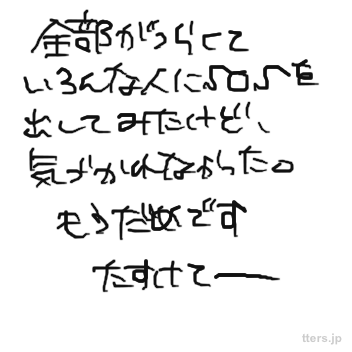 全部がつらくて
いろんな人にSOSを
出してみたけど、
気づかれなかった。
もうだめです
たすけてー
tters.jp